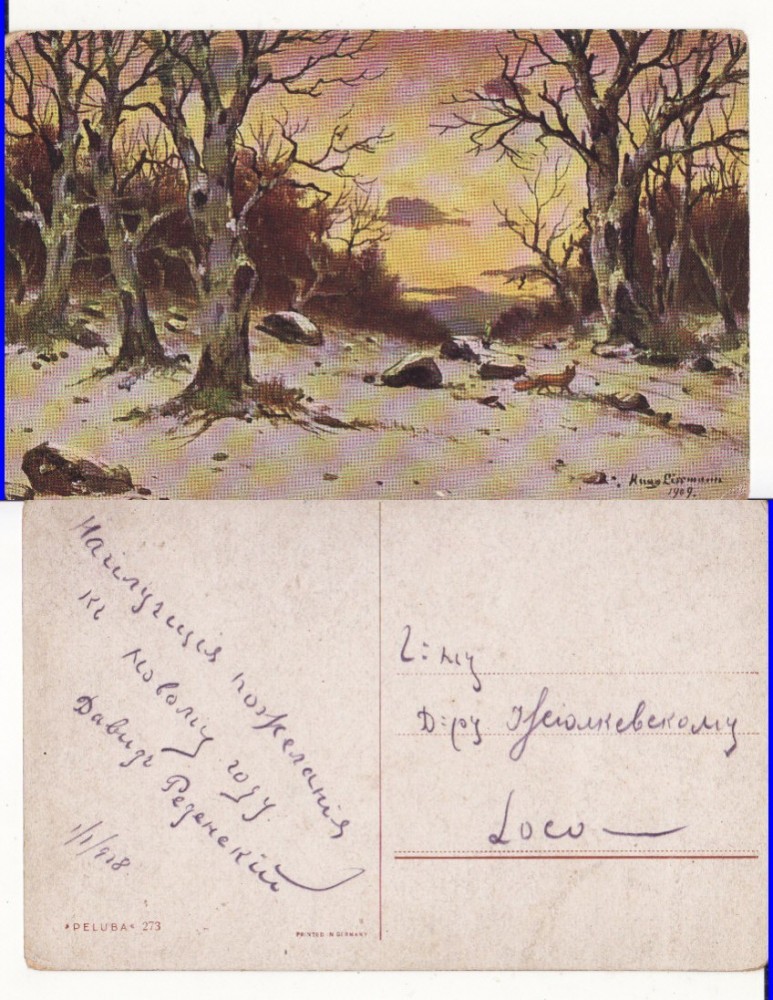 Hugo Lissmann
1909.
Наилучшія пожеланія
къ новому году.
Давидъ
1/1/928
Г:ну
Д:ру Жолкевскому
Loco
»PELUBA« 273
PRINTED IN GERMANY